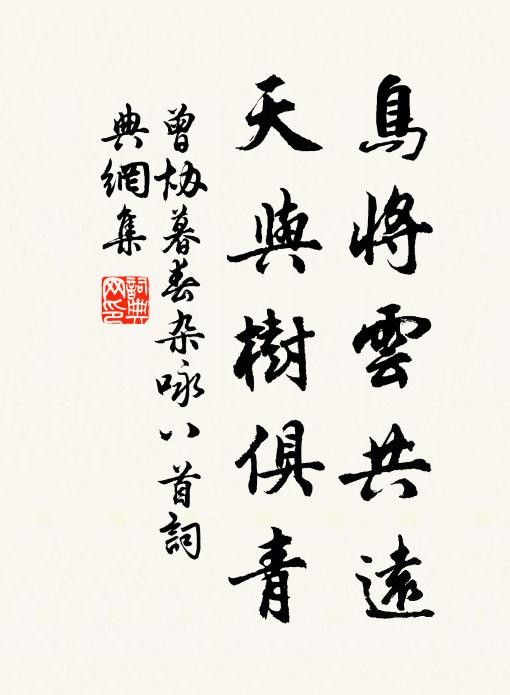 鳥將雲共遠
天與樹俱青
曾協暮春杂咏八首詞
典網集
詞典
网印